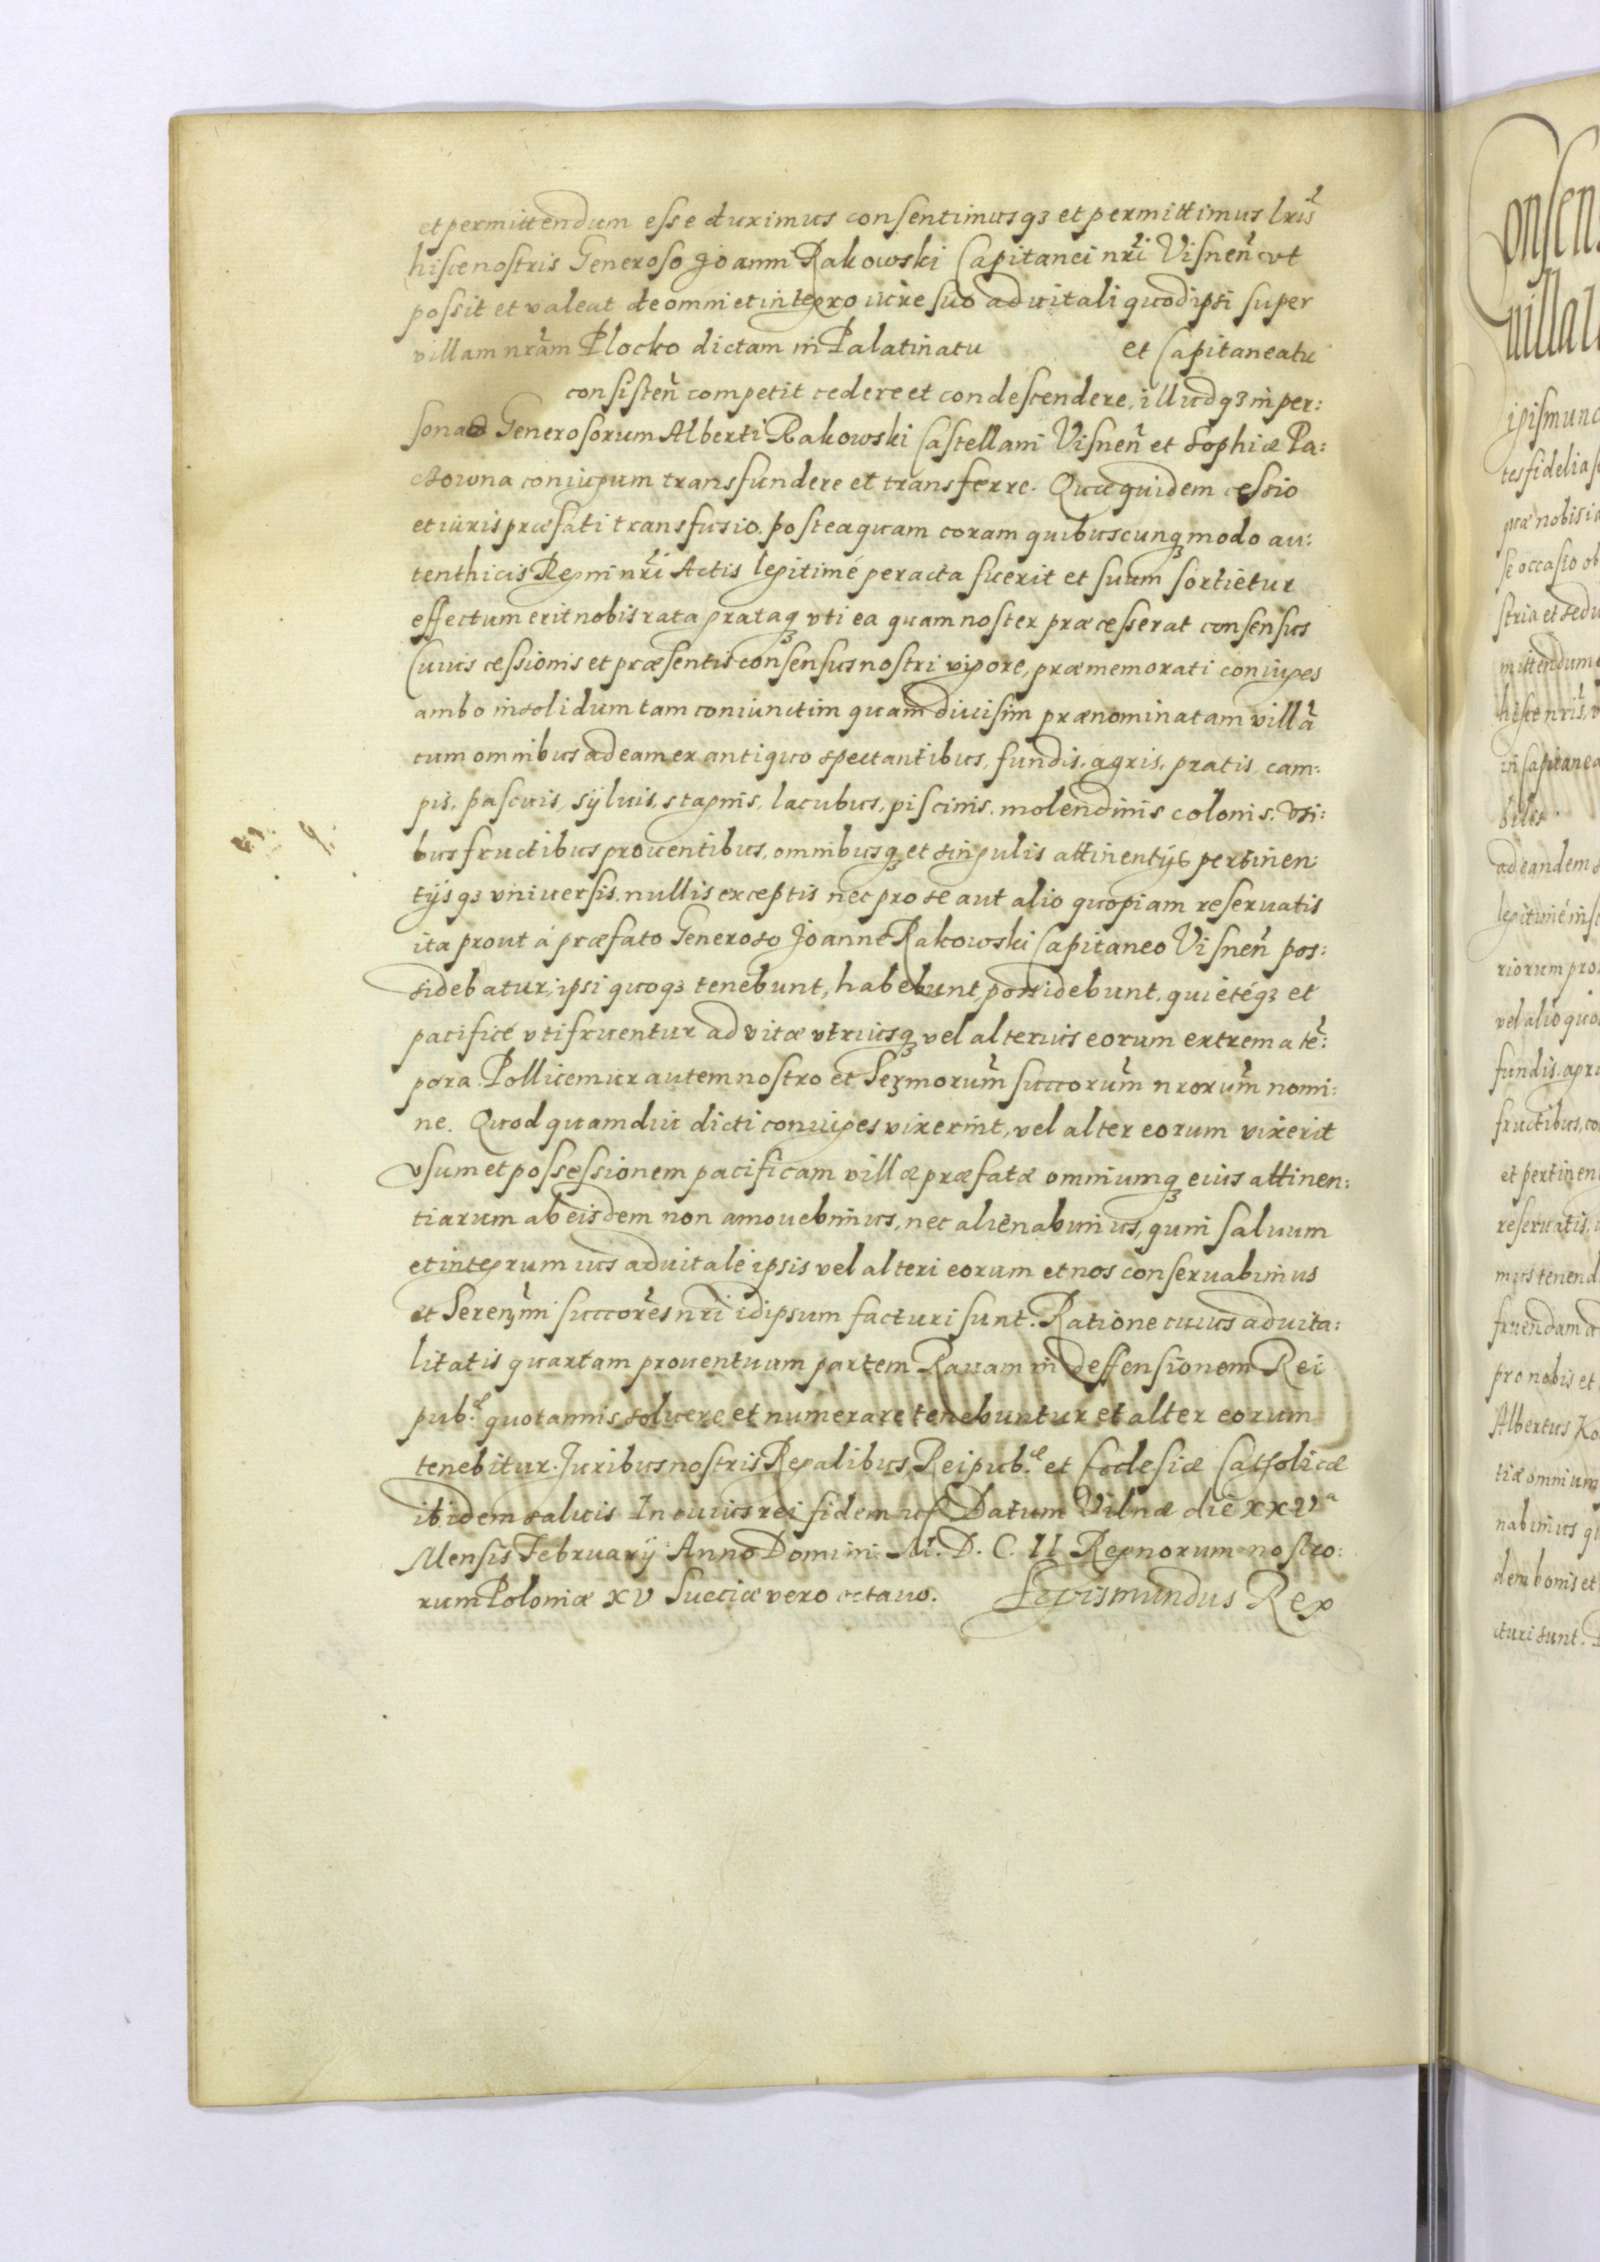 et permittendum esse duximus consentimusq3 et permittimus lris
hisce nostris Generoso Joanni Rakowski Capitanei nri Visnen vt
possit et valeat de omni et integro iure suo aduitali quod ipsi super
villam nram Plocko dictam in Palatinatu et Capitaneatu
consisten competit cedere et condescendere, illudq3 in per:
sonas Generosorum Alberti Rakowski Castellani Visnen et Sophiæ Pa:
coniugum transfundere et transferre. Quæ quidem cessio
et iuris præfati transfusio. posteaquam coram quibuscunq3 modo au:
tenthicis Regni nri Actis legitimé peracta fuerit et suum sortietur
effectum erit nobis rata grataq3 vti ea quam noster præcesserat consensus
Cuius cessionis et præsentis consensus nostri vigore, præmemorati coniuges
ambo insolidum tam coniunctim quam diuisim prænominatam villã
cum omnibus ad eam ex antiquo spectantibus, fundis, agris, pratis, cam:
pis, pascuis, syluis, stagnis, lacubus, piscinis, molendinis colonis, vsi:
bus fructibus prouentibus, omnibusq3 et singulis attinentijs pertinen:
tijsq3 vniuersis, nullis exceptis nec pro se aut alio quopiam reseruatis
ita prout á præfato Generoso Joanne Rakowski Capitaneo Visnen pos:
sidebatur, ipsi quoq3 tenebunt, habebunt, possidebunt, quietéq3 et
pacificé vtifruentur ad vitæ vtriusq3 vel alterius eorum extrema tẽ:
pora. Pollicemur autem nostro et Sermorum succorum nrorum nomi:
ne. Quod quamdiu dicti coniuges vixerint, vel alter eorum vixerit
vsum et possessionem pacificam villæ præfatæ omniumq3 eius attinen:
tiarum ab eisdem non amouebimus, nec alienabimus, quin saluum
et integrum ius aduitale ipsis vel alteri eorum et nos conseruabimus
et Serenmi succores nri idipsum facturi sunt. Ratione cuius aduita:
litatis quartam prouentuum partem Rauam in deffensionem Rei
pub.æ quotannis soluere et numerare tenebuntur et alter eorum
tenebitur. Juribus nostris Regalibus, Reipub.æ et Ecclesiæ Catholicæ
ibidem saluis In cuius rei fidem Datum Vilnæ die XXVa
Mensis February Anno Domini. M. D. C. II Regnorum nostro:
rum Poloniæ XV Sueciæ vero octauo. Sigismundus Rex